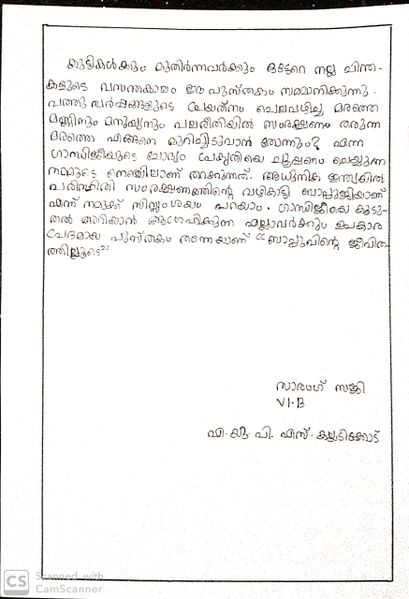 കുട്ടികൾക്കും മുതിർന്നവർക്കും ഒട്ടേറെ നല്ല ചിന്ത-
കളുടെ വസന്തകാലം ഈ പുസ്തകം സമ്മാനിക്കുന്നു.
പത്തു വർഷങ്ങളുടെ പ്രയത്നം ചെലവഴിച്ചു മരത്തെ
മണ്ണിനും മനുഷ്യനും പലരീതിയിൽ സംരക്ഷണം തരുന്ന
മരത്തെ എങ്ങനെ മുറിച്ചിടുവാൻ തോന്നും? എന്ന
ഗാന്ധിജിയുടെ ചോദ്യം പ്രകൃതിയെ ചൂഷണം ചെയ്യുന്ന
നമ്മുടെ നെഞ്ചിലാണ് തറക്കുന്നത്. ആധുനിക ഇന്ത്യക്ക്
പരിസ്ഥിതി സംരക്ഷണത്തിന്റെ വഴികാട്ടി ബാപ്പുജിയാണ്
എന്ന് നമുക്ക് നിസ്സംശയം പറയാം. ഗാന്ധിജിയെ കൂടു-
തൽ അറിയാൻ ആഗ്രഹിക്കുന്ന എല്ലാവർക്കും ഉപകാര
പ്രദമായ പുസ്തകം തന്നെയാണ് "ബാപ്പുവിന്റെ ജീവിത
ത്തിലൂടെ"
സാരംഗ് സജി
VI.B
എ. യു. പി. എസ്. കല്ലടിക്കോട്
CS Scanned with
CamScanner